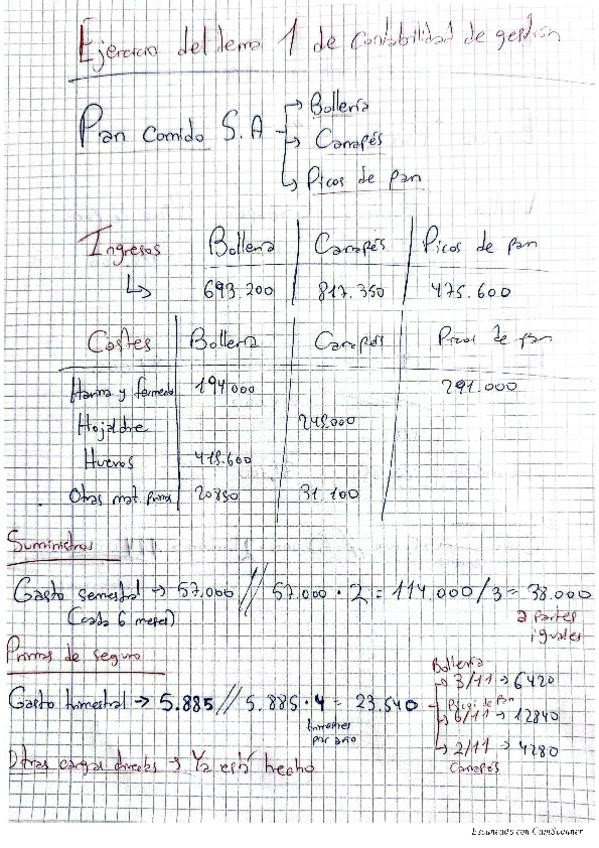 Ejercicio del tema 1 de contabilidad de gestión
Pan Comido S.A → Bollería
→ Canapés
→ Picos de pan
Ingresos Bollería Canapés Picos de pan
↳ 693.200 817.350 475.600
Costes Bollería Canapés Picos de pan
Harina y fermento 194.000 291.000
Hojaldre 249.000
Huevos 419.600
Otras mat. primas 20850 31.100
Suministros
Gasto semestral → 57.000 // 57.000 · 2 = 114.000/3 = 38.000
(cada 6 meses) a partes
iguales
Primas de seguro
Gasto trimestral → 5.885 // 5.885 · 4 = 23.540
trimestres
por año
Bollería
→ 3/11 → 6420
Picos de pan
→ 6/11 → 12840
→ 2/11 → 4280
Canapés
Otras cargas directas → Ya está hecho
Escaneado con CamScanner